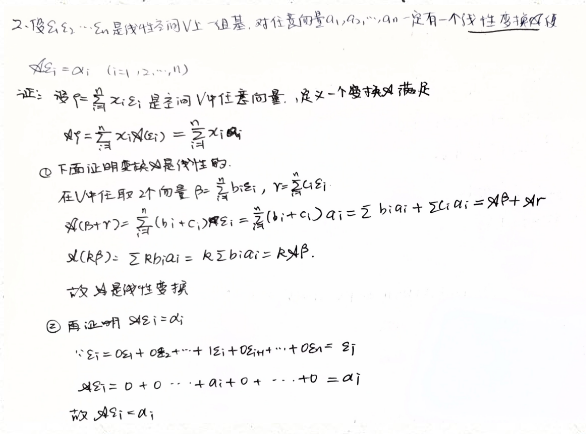 2.设ε₁ε₂…εn是线性空间V上一组基,对任意向量α₁,α₂,…,αn一定有一个线性变换𝒜使
𝒜εᵢ=αᵢ (i=1,2,…,n)
证:设ρ=∑ⁿᵢ₌₁xᵢεᵢ是空间V中任意向量,定义一个变换𝒜满足
𝒜ρ=∑ⁿᵢ₌₁xᵢ𝒜(εᵢ)=∑ⁿᵢ₌₁xᵢαᵢ
①下面证明变换𝒜是线性的.
在V中任取2个向量β=∑ⁿᵢ₌₁bᵢεᵢ,γ=∑ⁿᵢ₌₁cᵢεᵢ
𝒜(β+γ)=∑ⁿᵢ₌₁(bᵢ+cᵢ)𝒜εᵢ=∑ⁿᵢ₌₁(bᵢ+cᵢ)αᵢ=∑bᵢαᵢ+∑cᵢαᵢ=𝒜β+𝒜γ
𝒜(kβ)=∑kbᵢαᵢ=k∑bᵢαᵢ=k𝒜β.
故𝒜是线性变换
②再证明𝒜εᵢ=αᵢ
∵εᵢ=0ε₁+0ε₂+…+1εᵢ+0εᵢ₊₁+…+0εn=εᵢ
𝒜εᵢ=0+0…+αᵢ+0+…+0=αᵢ
故𝒜εᵢ=αᵢ